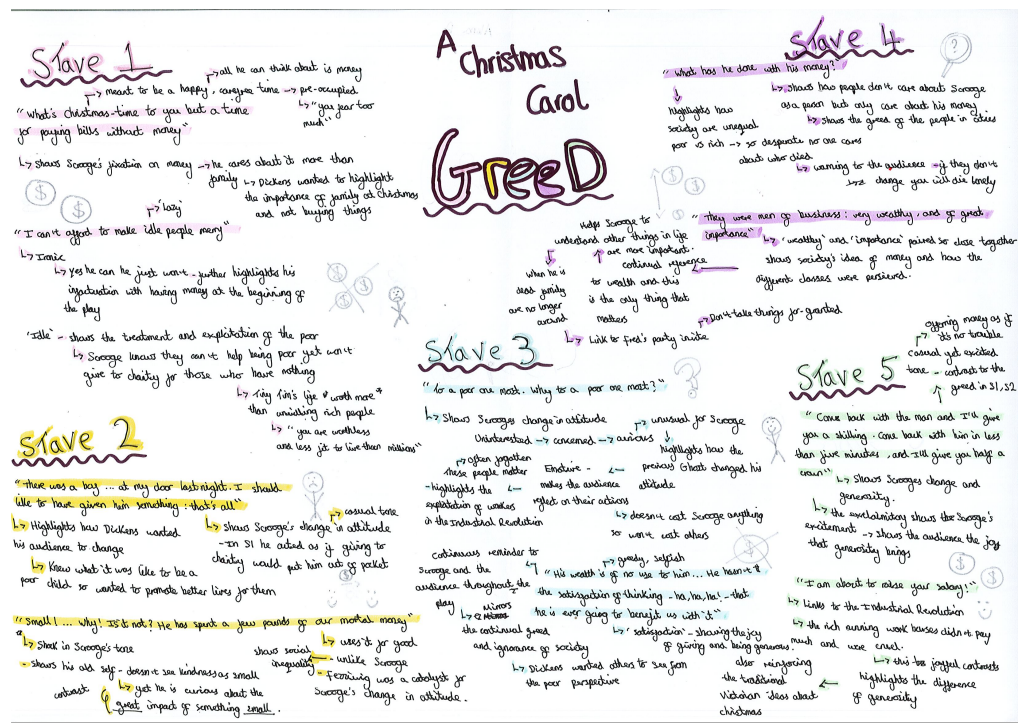 A
Christmas
Carol
GreeD
Stave 1
all he can think about is money
meant to be a happy, carefree time → pre-occupied
"What's Christmas-time to you but a time
for paying bills without money"
"you fear too
much"
shows Scrooge's fixation on money → he cares about it more than
family
Dickens wanted to highlight
the importance of family at Christmas
and not buying things
'lazy'
"I can't afford to make idle people merry"
Ironic
yes he can he just won't - further highlights his
infatuation with having money at the beginning of
the play
'Idle' - shows the treatment and exploitation of the poor
Scrooge knows they can't help being poor yet won't
give to charity for those who have nothing
Tiny Tim's life "worth more"
than unwilling rich people
"you are worthless
and less fit to live than millions"
Stave 2
"There was a boy ... at my door last night. I should
like to have given him something: that's all"
casual tone
Highlights how Dickens wanted
his audience to change
shows Scrooge's change in attitude
- In S1 he acted as if giving to
charity would put him out of pocket
Knew what it was like to be a
poor child so wanted to promote better lives for them
"Small! ... Why! Is it not? He has spent a few pounds of our mortal money"
Shock in Scrooge's tone
- shows his old self - doesn't see kindness as small
contrast
yet he is curious about the
great impact of something small.
shows social
inequality
uses it for good
- unlike Scrooge
- Fezziwig was a catalyst for
Scrooge's change in attitude.
Stave 3
"To a poor one most. Why to a poor one most?"
Shows Scrooges change in attitude
unusual for Scrooge
Uninterested → concerned → curious
highlights how the
previous Ghost changed his
attitude
often forgotten
these people matter
- highlights the
exploitation of workers
in the Industrial Revolution
Emotive -
makes the audience
reflect on their actions
doesn't cost Scrooge anything
so won't cost others
greedy, selfish
"His wealth is of no use to him... He hasn't
the satisfaction of thinking - ha, ha, ha! - that
he is ever going to benefit us with it"
continuous reminder to
Scrooge and the
audience throughout the
play
Mirrors
the continual greed
and ignorance of society
'satisfaction' - showing the joy
of giving and being generous.
Dickens wanted others to see from
the poor perspective
also reinforcing
the traditional
Victorian ideas about
christmas
Stave 4
"What has he done with his money?"
shows how people don't care about Scrooge
as a person but only care about his money
shows the greed of the people in cities
highlights how
society are unequal
poor vs rich → so desperate no one cares
about who died
warning to the audience - if they don't
change you will die lonely
"They were men of business: very wealthy, and of great
importance"
'wealthy' and 'importance' paired so close together
shows society's idea of money and how the
different classes were perceived.
Helps Scrooge to
understand other things in life
are more important.
continual reference
to wealth and this
is the only thing that
matters
when he is
dead family
are no longer
around
Don't take things for-granted
Link to Fred's party invite
Stave 5
offering money as if
it's no trouble
casual yet excited
tone - contrast to the
greed in S1, S2
"Come back with the man and I'll give
you a shilling. Come back with him in less
than five minutes and I'll give you half a
crown"
Shows Scrooges change and
generosity.
the exclamitory shows the Scrooge's
excitement → shows the audience the joy
that generosity brings
"I am about to raise your salary!"
Links to the Industrial Revolution
the rich owning work houses didn't pay
much and were cruel.
this joyful contrasts
highlights the difference
of generosity